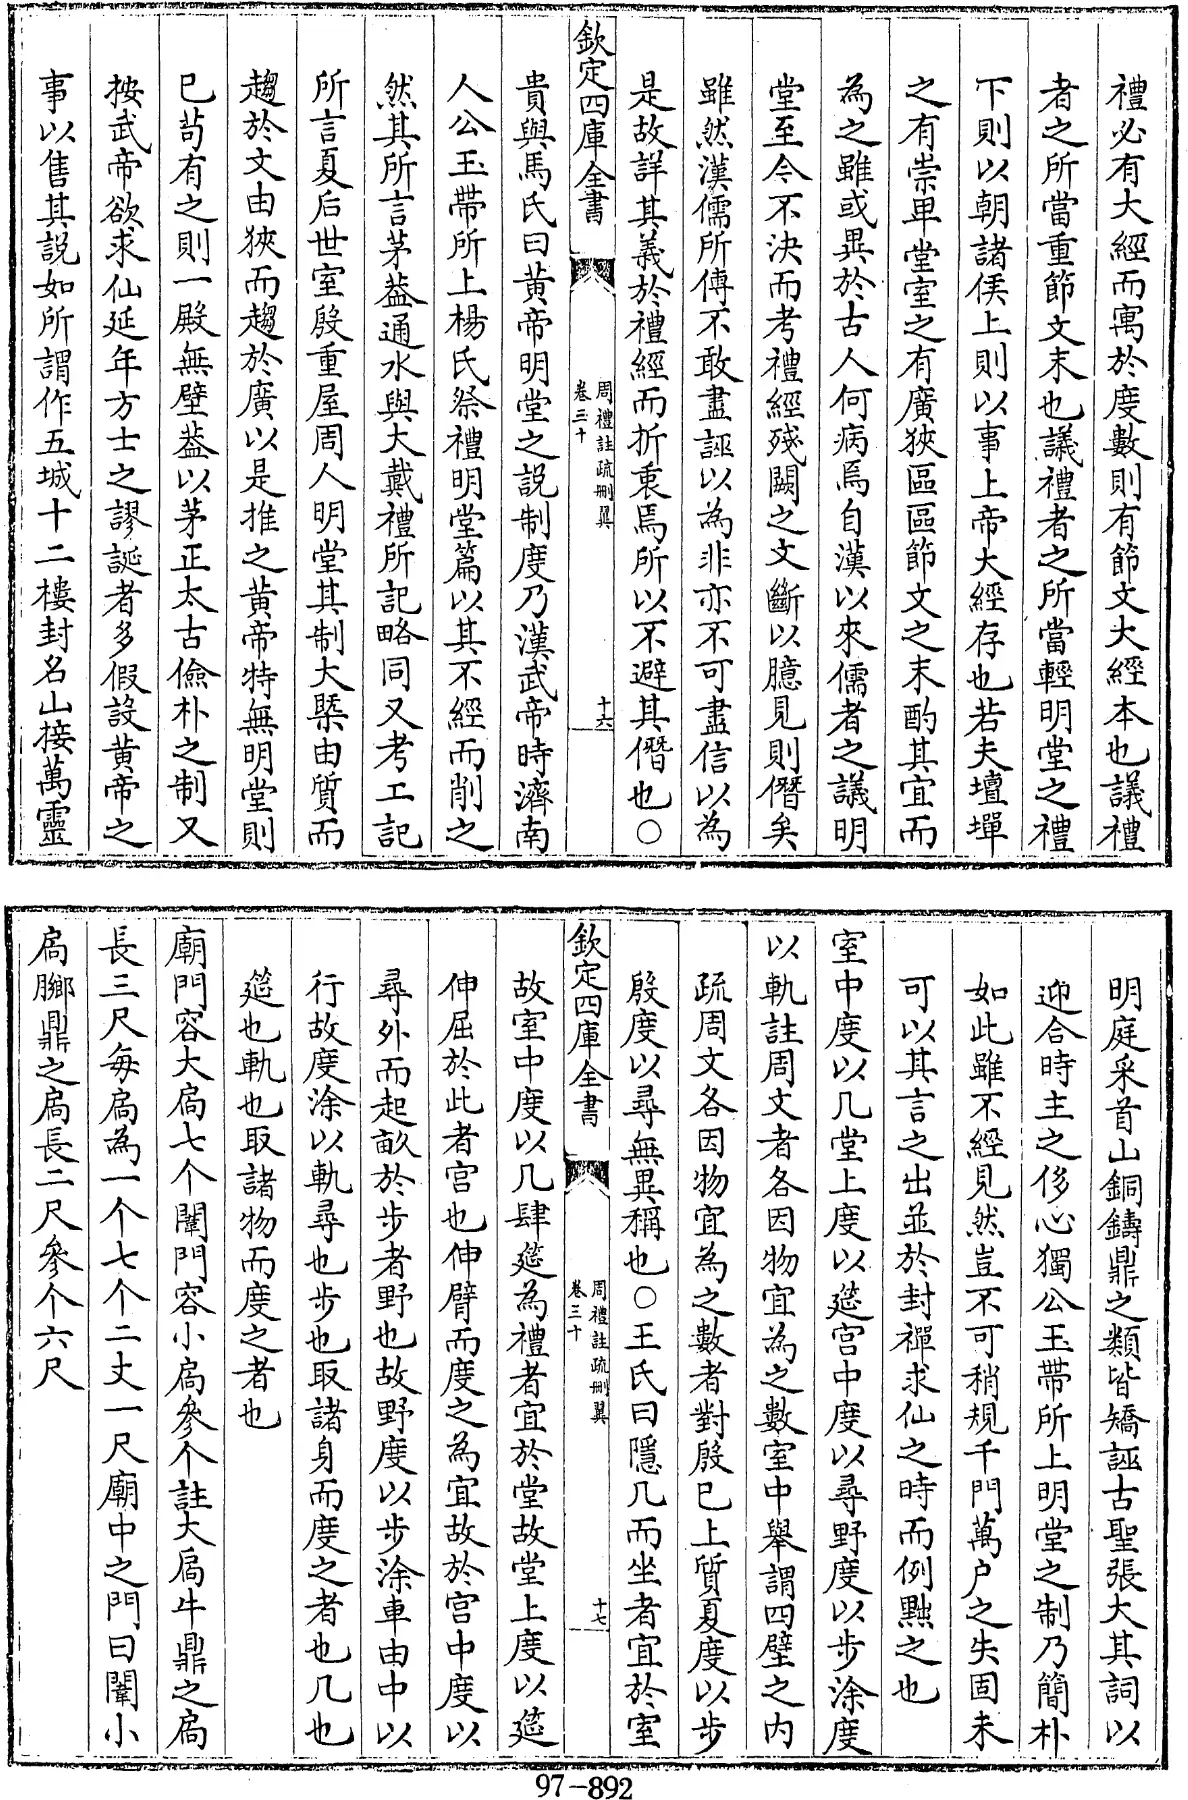 禮必有大經而寓於度數則有節文大經本也議禮
者之所當重節文末也議禮者之所當輕明堂之禮
下則以朝諸侯上則以事上帝大經存也若夫壇墠
之有崇卑堂室之有廣狹區區節文之末酌其宜而
為之雖或異於古人何病焉自漢以來儒者之議明
堂至今不決而考禮經殘闕之文斷以臆見則僭矣
雖然漢儒所傳不敢盡誣以為非亦不可盡信以為
是故詳其義於禮經而折衷焉所以不避其僭也○
欽定四庫全書
周禮註疏刪翼
卷三十
十六
貴與馬氏曰黃帝明堂之説制度乃漢武帝時濟南
人公玉帶所上楊氏祭禮明堂篇以其不經而削之
然其所言茅葢通水與大戴禮所記略同又考工記
所言夏后世室殷重屋周人明堂其制大槩由質而
趨於文由狹而趨於廣以是推之黃帝特無明堂則
已茍有之則一殿無壁葢以茅正太古儉朴之制又
按武帝欲求仙延年方士之謬誕者多假設黃帝之
事以售其説如所謂作五城十二樓封名山接萬靈
明庭采首山銅鑄鼎之類皆矯誣古聖張大其詞以
迎合時主之侈心獨公玉帶所上明堂之制乃簡朴
如此雖不經見然豈不可稍規千門萬户之失固未
可以其言之出並於封禪求仙之時而例黜之也
室中度以几堂上度以筵宫中度以尋野度以步涂度
以軌註周文者各因物宜為之數室中舉謂四壁之内
疏周文各因物宜為之數者對殷已上質夏度以步
殷度以尋無異稱也○王氏曰隱几而坐者宜於室
欽定四庫全書
周禮註疏刪翼
卷三十
十七
故室中度以几肆筵為禮者宜於堂故堂上度以筵
伸屈於此者宫也伸臂而度之為宜故於宫中度以
尋外而起畝於步者野也故野度以步涂車由中以
行故度涂以軌尋也步也取諸身而度之者也几也
筵也軌也取諸物而度之者也
廟門容大扃七个闈門容小扃參个註大扃牛鼎之扃
長三尺每扃為一个七个二丈一尺廟中之門曰闈小
扃膷鼎之扃長二尺參个六尺
97-892